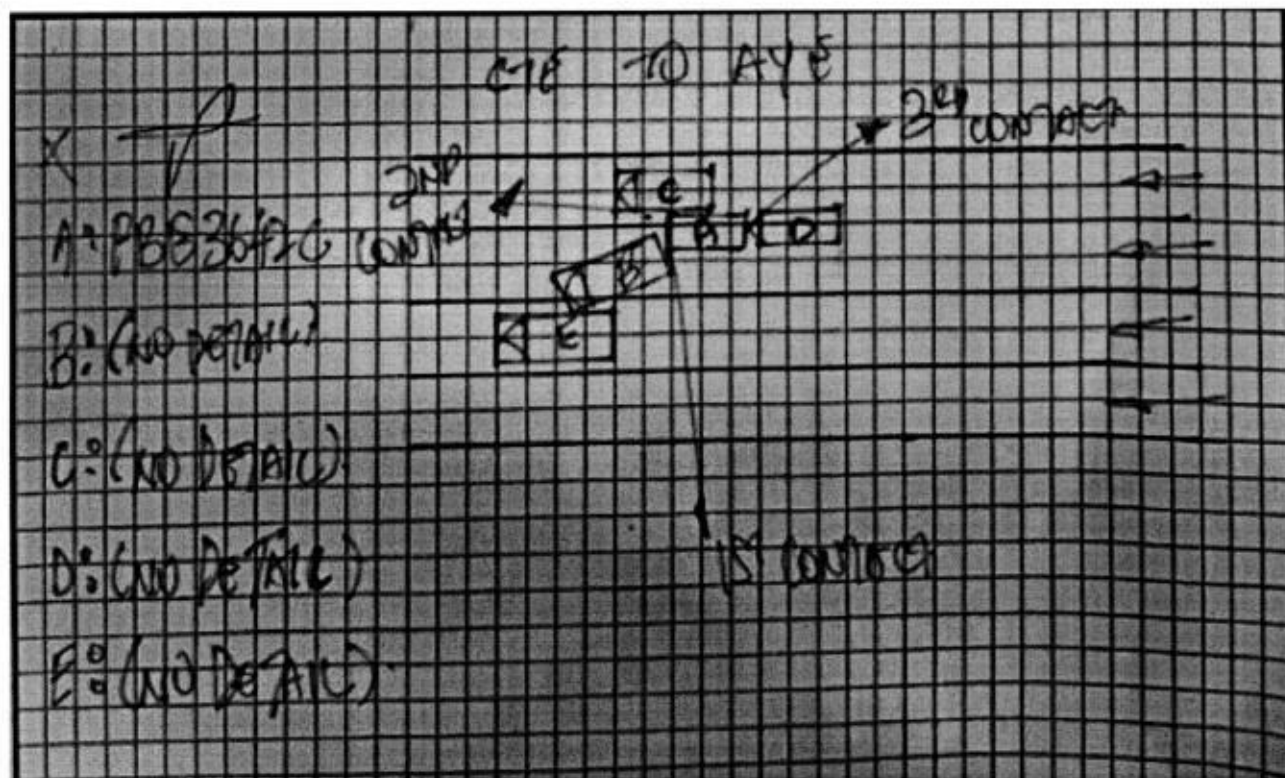 CTE TO AYE
3RD CONTACT
2ND
CONTACT
C
A D
B
E
A: PBE3642G
B: (NO DETAIL)
C: (NO DETAIL)
D: (NO DETAIL)
E: (NO DETAIL)
1ST CONTACT